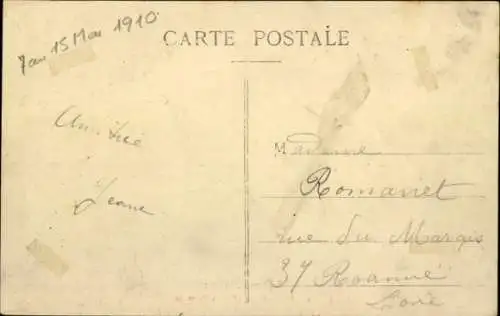 15 Mai 1910
CARTE POSTALE
Un
Jeanne
Madame
Romanet
rue du Marais
37 Roanne
Loire